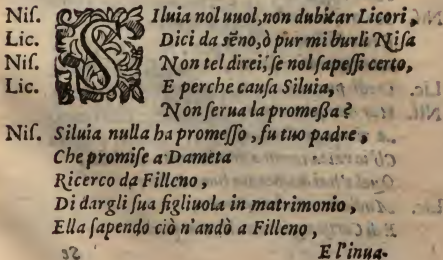 Niſ. SIluia nol uuol, non dubitar Licori,
Lic. Dici da sẽno, ò pur mi burli Niſa
Niſ. Non tel direi, ſe nol ſapeſſi certo,
Lic. E perche cauſa Siluia,
Non ſerua la promeßa?
Niſ. Siluia nulla ha promeſſo, fu tuo padre,
Che promiſe a Dameta
Ricerco da Filleno,
Di dargli ſua figliuola in matrimonio,
Ella ſapendo ciò n'andò a Filleno,
E l'inua-